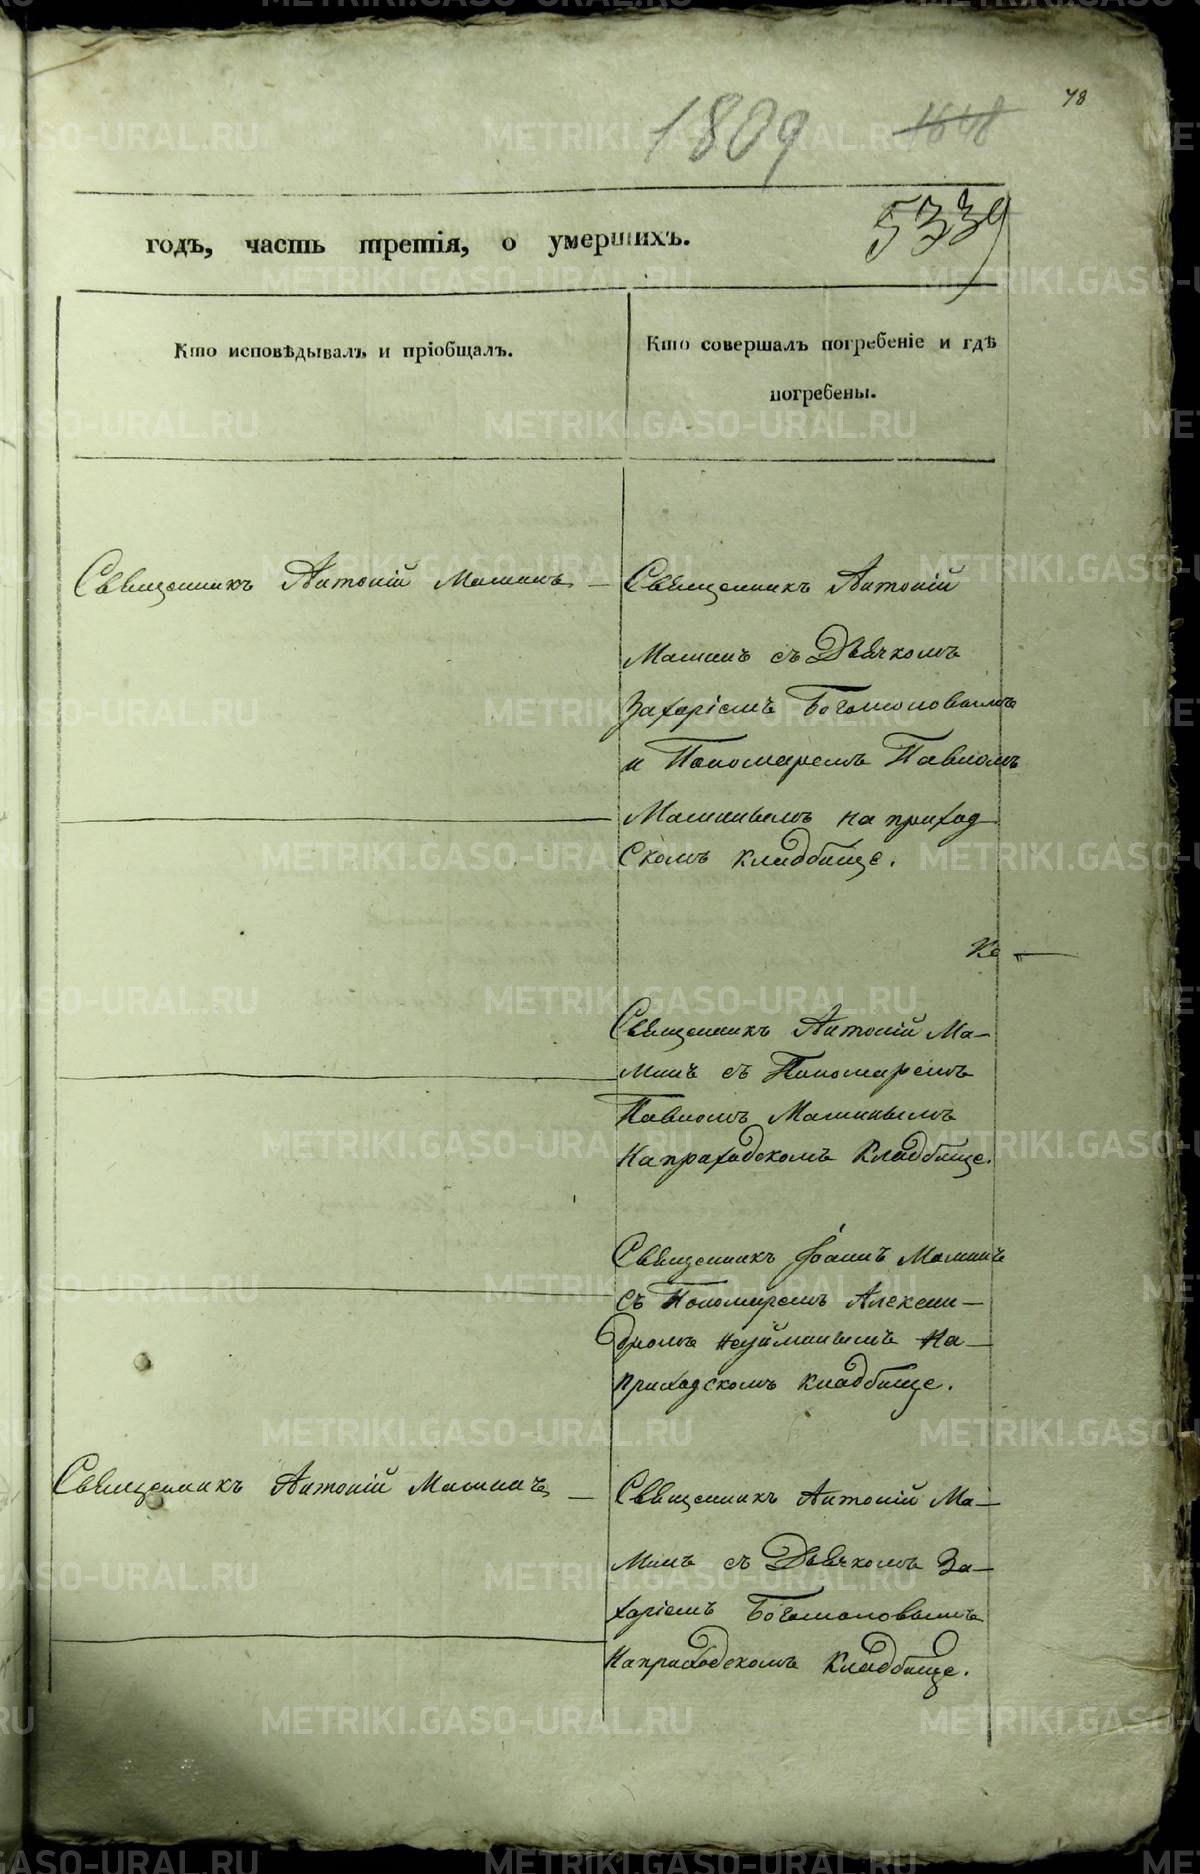 78
1809 1648
5339
годъ, часть третія, о умершихъ.
Кто исповѣдывалъ и пріобщалъ.
Кто совершалъ погребеніе и гдѣ
погребены.
Священникъ Антоній Маминъ —
Священникъ Антоній
Маминъ съ Дьячкомъ
Захаріемъ Богомоловымъ
и Пономаремъ Павломъ
Маминымъ на приход
скомъ кладбище.
Священникъ Антоній Ма-
минъ съ Пономаремъ
Павломъ Маминымъ
На приходскомъ Кладбище.
Священникъ Іоаннъ Маминъ
съ Пономаремъ Алексан-
дромъ Неуйминымъ На-
приходскомъ кладбище.
Священникъ Антоній Маминъ —
Священникъ Антоній Ма-
минъ съ Дьячкомъ За-
харіемъ Богомоловымъ
На приходскомъ Кладбище.
METRIKI.GASO-URAL.RU